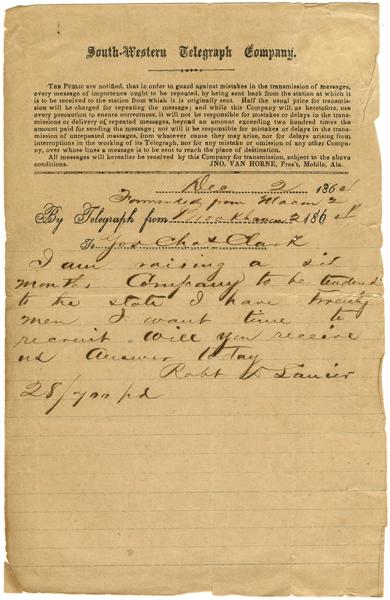 South-Western Telegraph Company.
THE PUBLIC are notified, that in order to guard against mistakes in the transmission of messages,
every message of importance ought to be repeated, by being sent back from the station at which it
is to be received to the station from which it is originally sent. Half the usual price for transmis-
sion will be charged for repeating the message; and while this Company will as heretofore, use
every precaution to ensure correctness, it will not be responsible for mistakes or delays in the trans-
missions or delivery of repeated messages, beyond an amount exceeding two hundred times the
amount paid for sending the message; nor will it be responsible for mistakes or delays in the trans-
mission of unrepeated messages, from whatever cause they may arise, nor for delays arising from
interruptions in the working of its Telegraph, nor for any mistake or omission of any other Company,
over whose lines a message is to be sent to reach the place of destination.
All messages will hereafter be received by this Company for transmission, subject to the above
conditions. JNO. VAN HORNE, Pres't, Mobile, Ala.
Dec 2 186
Forwarded from Macon 2
By Telegraph from 2 186
To Gov Chas Clark
I am raising a six
months Company to be tendered
to the state I have twenty
men I want time to
recruit will you receive
us Answer to day
Robt Lanier
28/700 pd